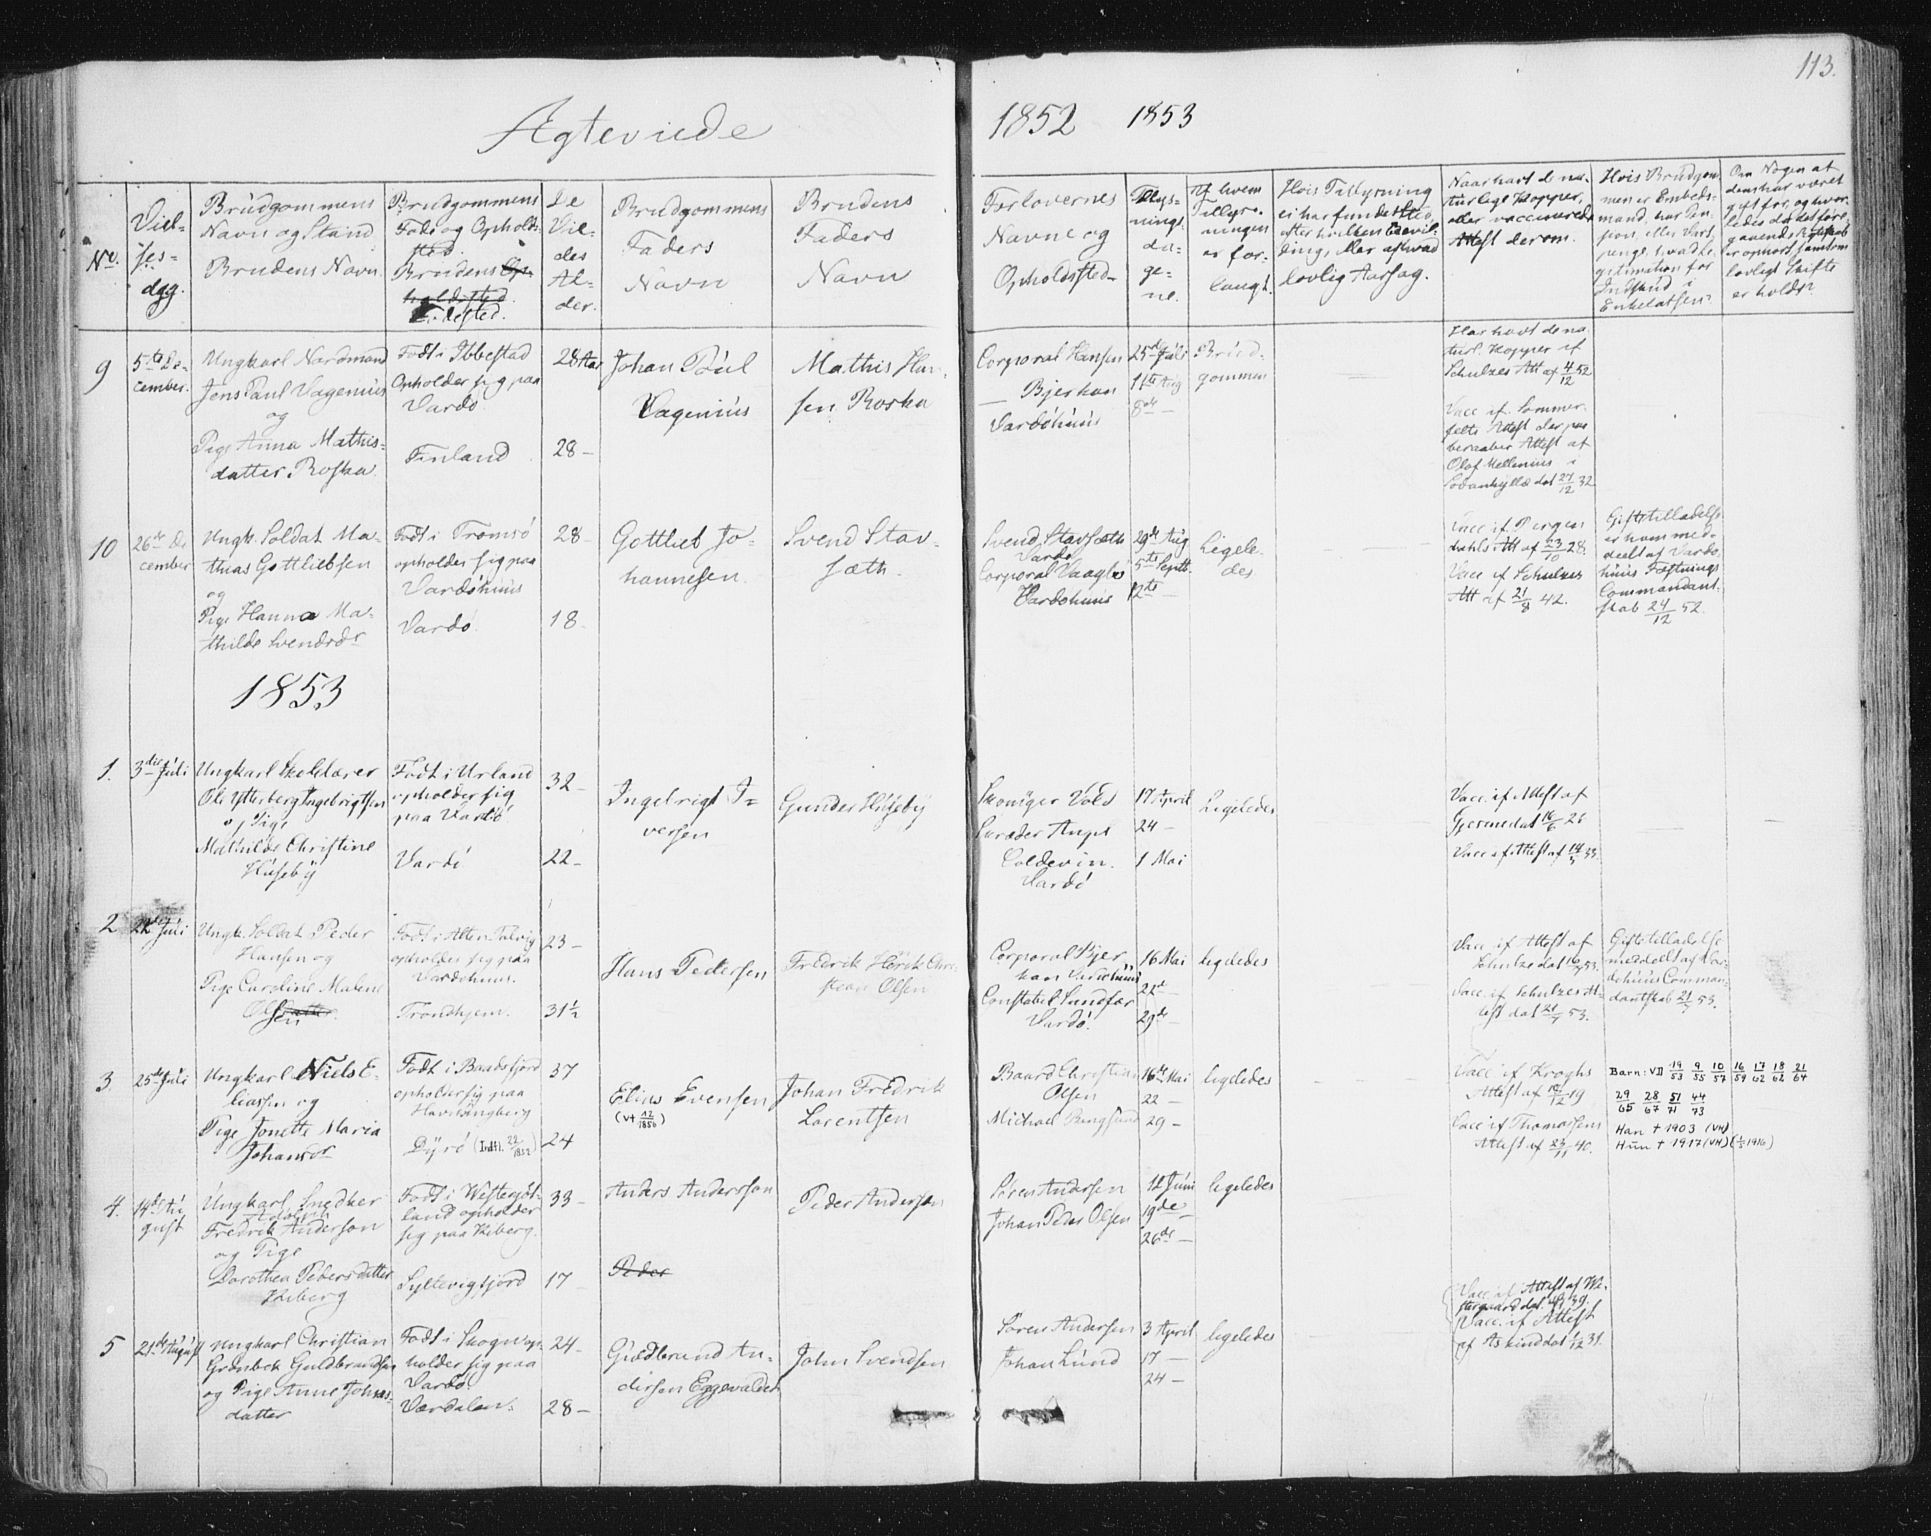 113.
Ægteviede
1852 1853
No.
Viel-
ses-
dag.
Brudgommens
Navn og Stand
Brudens Navn.
Brudgommens
Føde og Opholds-
sted.
Brudens Op-
holdssted.
Fødested.
De
Vie-
des
Al-
der.
Brudgommens
Faders
Navn
Brudens
Faders
Navn
Forlovernes
Navne og
Opholdssted
Tillys-
nings-
da-
ge-
ne.
Af hvem
Tillys-
ningen
er for-
langt.
Hvis Tillysning
ei har fundet Sted,
efter hvilken Bevil-
ding, eller af hvad
lovlig Aarsag.
Naar havt de na-
turlige Kopper,
eller vaccinerede
Attest derom.
Hvis Brudgom-
men er Embeds-
mand, har Pen-
sion, eller
Indskud i
Enkekassen?
Om Nogen af
dem har været
gift før, og hvor-
ledes det fore-
gaaende Ægteskab
er ophørt, samt om
lovligt Skifte
er holdt?
9
5te De-
cember.
Ungkarl Nordmand
Jens Paul Vagenius
og
Pige Anna Mathis-
datter Roska
Født i Ibbestad
Opholder sig paa
Vardø
Finland
28 Aar
28 –
Johan Poul
Vagenius
Mathis Han-
sen Roska
Corporal Hansen
— Bjerkan
Vardöhuus
25de Juli
1ste Aug
8de —
Brud-
gommen
Har havt de na-
turl. Kopper if
Schulzes Att af 4/12 52
Vacc. if. Sommer-
felts Attest der paa
beraaber Attest af
Olof Mellenius i
Sodankyllæ dat 27/12 32
10
26de De
cember
Ungk. Soldat Ma-
thias Gottliebsen
og
Pige Hanna Ma-
thilde Svendsdr
Født i Tromsö
opholder sig paa
Vardöhuus
Vardö.
28 –
18.
Gottlieb Jo-
hannesen.
Svend Stav-
sæth.
Svend Stavsæth
Vardö
Corporal Vaagbø
Vardöhuus
29de Aug
5te Septb.
12te —
Ligele-
des
Vacc if Bergen
dahls Att af 23/10 28.
Vacc if Schulzes
Att af 21/8 42.
Giftetilladelse
er ham med-
deelt af Vardö-
huus Fæstnings
Commandant-
skab 24/12 52.
1853
1.
3die Juli
Ungkarl Skolelærer
Ole Ytterberg Ingebrigtsen
og Pige
Mathilde Christine
Huseby
Født i Urland
opholder sig
paa Vardö.
Vardö
32 –
22 –
Ingebrigt I-
versen
Gunder Huseby
Kræder Angel
Coldevin.
Vardö
17 April
24 —
1 Mai
Ligeledes
Vacc. if Attest af
dat 16/6 26
Vacc. if Attest af 33.
2
Juli
Ungk. Soldat Peder
Hansen og
Pige Caroline Malene
Olsdatter
sen
Født i Alten-Talvig
opholder sig paa
Vardöhuus.
Trondhjem.
23 –
31½
Hans Pedersen
Fredrik Hörik Chri-
stian Olsen
Corporal Bjer
kan Vardöhuus
Constabel Sundfær
Vardö.
16 Mai
22de —
29de —
ligeledes
Vacc. if Attest af
Schulze dat 53.
Vacc. if Schulzes At-
test dat 21/7 53.
Giftetilladelse
meddelt af Var-
döhuus Comman-
dantskab 21/7 53.
3.
25de Juli
Ungkarl Niels E-
liassen og
Pige Jonette Maria
Johansdr
Født i Baadsfjord
opholder sig paa
Havningberg
Dÿrö (Indfl. 22/1852)
37
24
Elias Evensen
(V+ 12/1856)
Johan Fredrik
Lorentsen
Baard Christian
Olsen
Michael Ringsund
16de Mai
22 —
29 —
ligeledes
Vacc if Kroghs
Attest af 10/12 19.
Vacc if Thomassens
Attest af 23/11 40.
Barn: VD 19/53 9/55 10/57 16/59 17/62 18/62 21/64
29/65 28/67 51/71 44/73
Han † 1903 (VH)
Hun † 1917 (VH) (1/3 1916)
4.
14de Au-
gust
Ungkarl Snedker
Adolph
Fredrik Anderson
og Pige
Dorothea Pedersdatter
Kiberg
Født i Westergöt-
land opholder
sig paa Kiberg.
Syltevigfjord
33 –
17 –
Anders Andersson
Peder
Peder Andersen
Sören Andersen
Johan Peder Olsen
12 Juni
19de —
26de —
ligeledes
Vacc. if Attest af We-
stergaard dat. 39.
5
21de August
Ungkarl Christian
Grönbek Guldbrandsen
og Pige Anne Johns-
datter
Født i Skogn op-
holder sig paa
Vardö
Værdalen.
24 –
28 –
Guldbrand An-
dersen Eggevalden
John Svendsen
Sören Andersen
Johan Lund
3 April
17 —
24 —
ligeledes
Vacc. if Attest
af Askind dat 1/12 31.